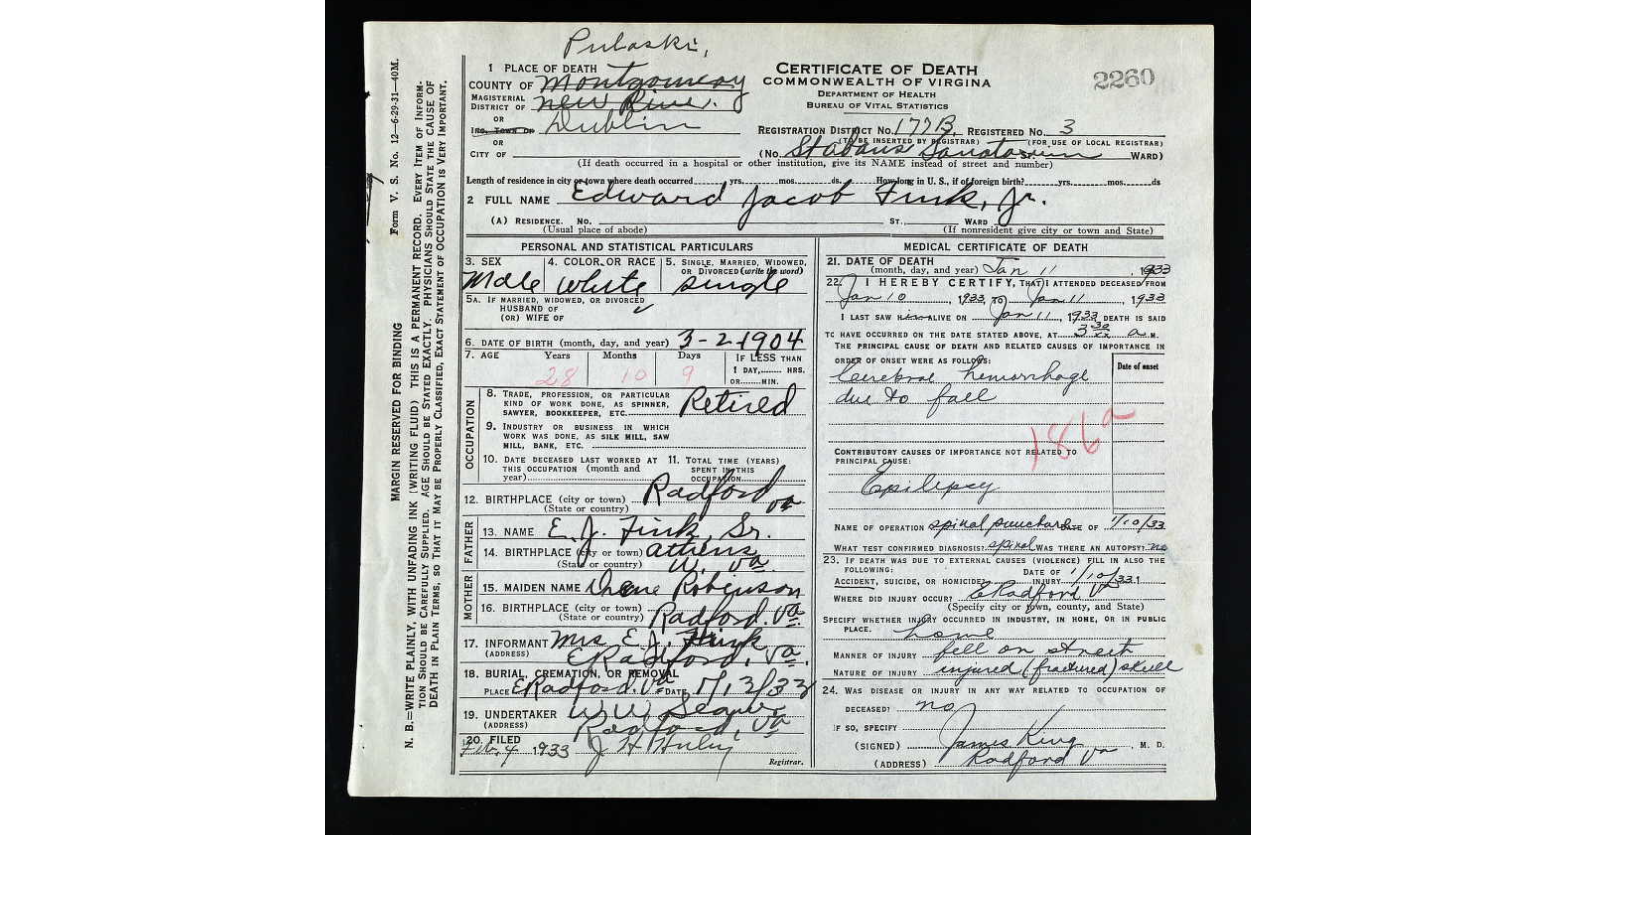 Pulaski,
1 PLACE OF DEATH
COUNTY OF Montgomery
MAGISTERIAL
DISTRICT OF New River.
OR
INC. TOWN OF Dublin
OR
CITY OF
CERTIFICATE OF DEATH
COMMONWEALTH OF VIRGINIA
DEPARTMENT OF HEALTH
BUREAU OF VITAL STATISTICS
2260
REGISTRATION DISTRICT No. 177B. REGISTERED No. 3
(TO BE INSERTED BY REGISTRAR) (FOR USE OF LOCAL REGISTRAR)
(No. St Albans Sanatorium WARD)
(If death occurred in a hospital or other institution, give its NAME instead of street and number)
Length of residence in city or town where death occurred yrs. mos. ds. How long in U. S., if of foreign birth? yrs. mos. ds
2 FULL NAME Edward Jacob Fink, Jr.
(A) RESIDENCE. No. ST. WARD
(Usual place of abode) (If nonresident give city or town and State)
PERSONAL AND STATISTICAL PARTICULARS
3. SEX 4. COLOR OR RACE 5. SINGLE, MARRIED, WIDOWED,
OR DIVORCED (write the word)
Male White Single
5A. IF MARRIED, WIDOWED, OR DIVORCED
HUSBAND OF
(OR) WIFE OF
6. DATE OF BIRTH (month, day, and year) 3-2-1904
7. AGE Years Months Days IF LESS THAN
28 10 9 1 DAY, HRS.
OR MIN.
OCCUPATION
8. TRADE, PROFESSION, OR PARTICULAR
KIND OF WORK DONE, AS SPINNER,
SAWYER, BOOKKEEPER, ETC. Retired
9. INDUSTRY OR BUSINESS IN WHICH
WORK WAS DONE, AS SILK MILL, SAW
MILL, BANK, ETC.
10. DATE DECEASED LAST WORKED AT 11. TOTAL TIME (YEARS)
THIS OCCUPATION (month and SPENT IN THIS
year) OCCUPATION
12. BIRTHPLACE (city or town) Radford
(State or country) Va
FATHER
13. NAME E. J. Fink, Sr.
14. BIRTHPLACE (city or town) Athens
(State or country) W. Va
MOTHER
15. MAIDEN NAME Robinson
16. BIRTHPLACE (city or town)
(State or country) Radford. Va.
17. INFORMANT Mrs E. J. Fink
(ADDRESS) E Radford, Va.
18. BURIAL, CREMATION, OR REMOVAL
PLACE E Radford. Va DATE 1/13/33
19. UNDERTAKER W. W.
(ADDRESS) Radford, Va
20. FILED
Feb. 4 1933 J H
Registrar.
MEDICAL CERTIFICATE OF DEATH
21. DATE OF DEATH
(month, day, and year) Jan 11, 1933
22. I HEREBY CERTIFY, THAT I ATTENDED DECEASED FROM
Jan 10, 1933, TO Jan 11, 1933
I LAST SAW HIM ALIVE ON Jan 11, 1933 DEATH IS SAID
TO HAVE OCCURRED ON THE DATE STATED ABOVE, AT 3 30 a M.
THE PRINCIPAL CAUSE OF DEATH AND RELATED CAUSES OF IMPORTANCE IN
ORDER OF ONSET WERE AS FOLLOWS: Date of onset
Cerebral hemorrhage
due to fall
186a
CONTRIBUTORY CAUSES OF IMPORTANCE NOT RELATED TO
PRINCIPAL CAUSE:
Epilepsy
NAME OF OPERATION spinal puncture DATE OF 1/10/33
WHAT TEST CONFIRMED DIAGNOSIS? spinal WAS THERE AN AUTOPSY? no
23. IF DEATH WAS DUE TO EXTERNAL CAUSES (VIOLENCE) FILL IN ALSO THE
FOLLOWING: DATE OF
ACCIDENT, SUICIDE, OR HOMICIDE? INJURY 1/10/33
WHERE DID INJURY OCCUR? E Radford Va
(Specify city or town, county, and State)
SPECIFY WHETHER INJURY OCCURRED IN INDUSTRY, IN HOME, OR IN PUBLIC
PLACE. home
MANNER OF INJURY fell on street
NATURE OF INJURY injured (fractured) skull
24. WAS DISEASE OR INJURY IN ANY WAY RELATED TO OCCUPATION OF
DECEASED? no
IF SO, SPECIFY
(SIGNED) James King, M. D.
(ADDRESS) Radford Va
MARGIN RESERVED FOR BINDING Form V. S. No. 12—6-29-31—40M.
N. B.—WRITE PLAINLY, WITH UNFADING INK (WRITING FLUID) THIS IS A PERMANENT RECORD. EVERY ITEM OF INFORM-
TION SHOULD BE CAREFULLY SUPPLIED. AGE SHOULD BE STATED EXACTLY. PHYSICIANS SHOULD STATE THE CAUSE OF
DEATH IN PLAIN TERMS, SO THAT IT MAY BE PROPERLY CLASSIFIED, EXACT STATEMENT OF OCCUPATION IS VERY IMPORTANT.